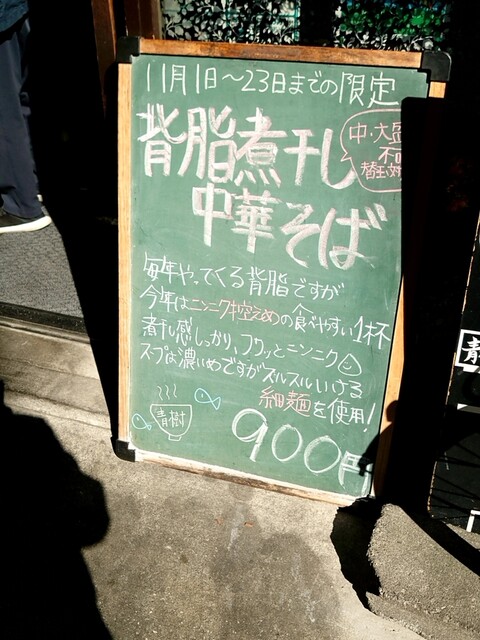 11月1日〜23日までの限定
背脂煮干し
中華そば
中・大盛
不可
替玉対
毎年やってくる背脂ですが
今年はニンニク控えめの食べやすい1杯
煮干し感しっかり、フワッとニンニク
スープは濃いめですがズルズルいける
細麺を使用!
青樹
900円
青